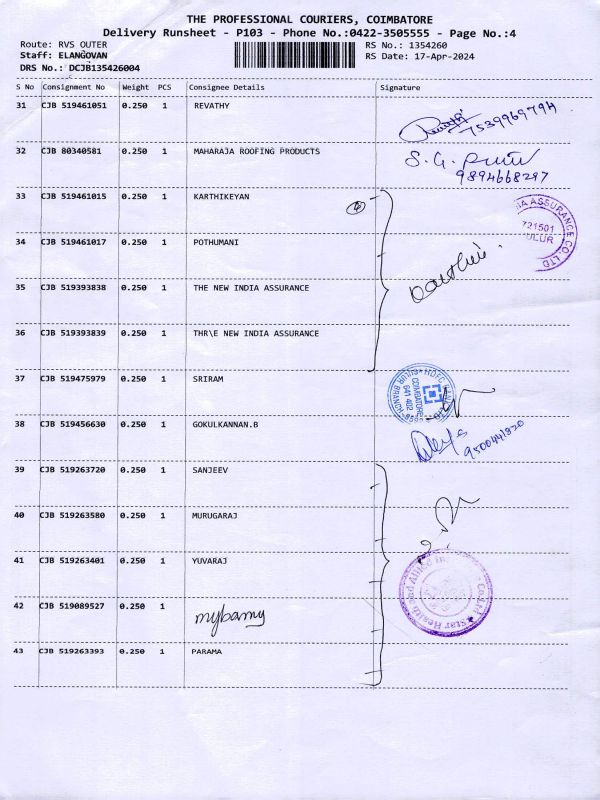 THE PROFESSIONAL COURIERS, COIMBATORE
Delivery Runsheet - P103 - Phone No.:0422-3505555 - Page No.:4
Route: RVS OUTER RS No.: 1354260
Staff: ELANGOVAN RS Date: 17-Apr-2024
DRS No.: DCJB135426004
S No Consignment No Weight PCS Consignee Details Signature
31 CJB 519461051 0.250 1 REVATHY 7539969794
32 CJB 80340581 0.250 1 MAHARAJA ROOFING PRODUCTS S.G.
9894668297
33 CJB 519461015 0.250 1 KARTHIKEYAN 4
ASSURANCE CO. LTD
721501
34 CJB 519461017 0.250 1 POTHUMANI
35 CJB 519393838 0.250 1 THE NEW INDIA ASSURANCE
36 CJB 519393839 0.250 1 THR\E NEW INDIA ASSURANCE
37 CJB 519475979 0.250 1 SRIRAM
HDFC BRANCH
COIMBATORE
641 402
38 CJB 519456630 0.250 1 GOKULKANNAN.B 9500441820
39 CJB 519263720 0.250 1 SANJEEV
40 CJB 519263580 0.250 1 MURUGARAJ
41 CJB 519263401 0.250 1 YUVARAJ
Star Health and Allied Co. Ltd
42 CJB 519089527 0.250 1
43 CJB 519263393 0.250 1 PARAMA